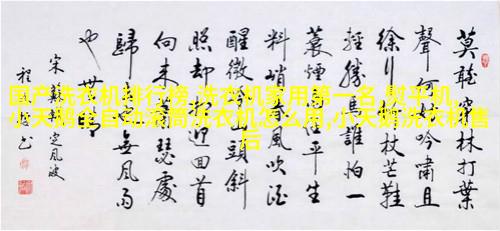 国产洗衣机排行榜,洗衣机家用第一名,熨平机、
小天鹅全自动滚筒洗衣机怎么用,小天鹅洗衣机售
后
莫聽穿林打葉
聲何妨吟嘯且
徐行竹杖芒鞋
輕勝馬誰怕一
蓑煙雨任平生
料峭春風吹酒
醒微冷山頭斜
照却相迎回首
向来蕭瑟處
歸去也無風雨
也無
宋蘇軾定風波
程书